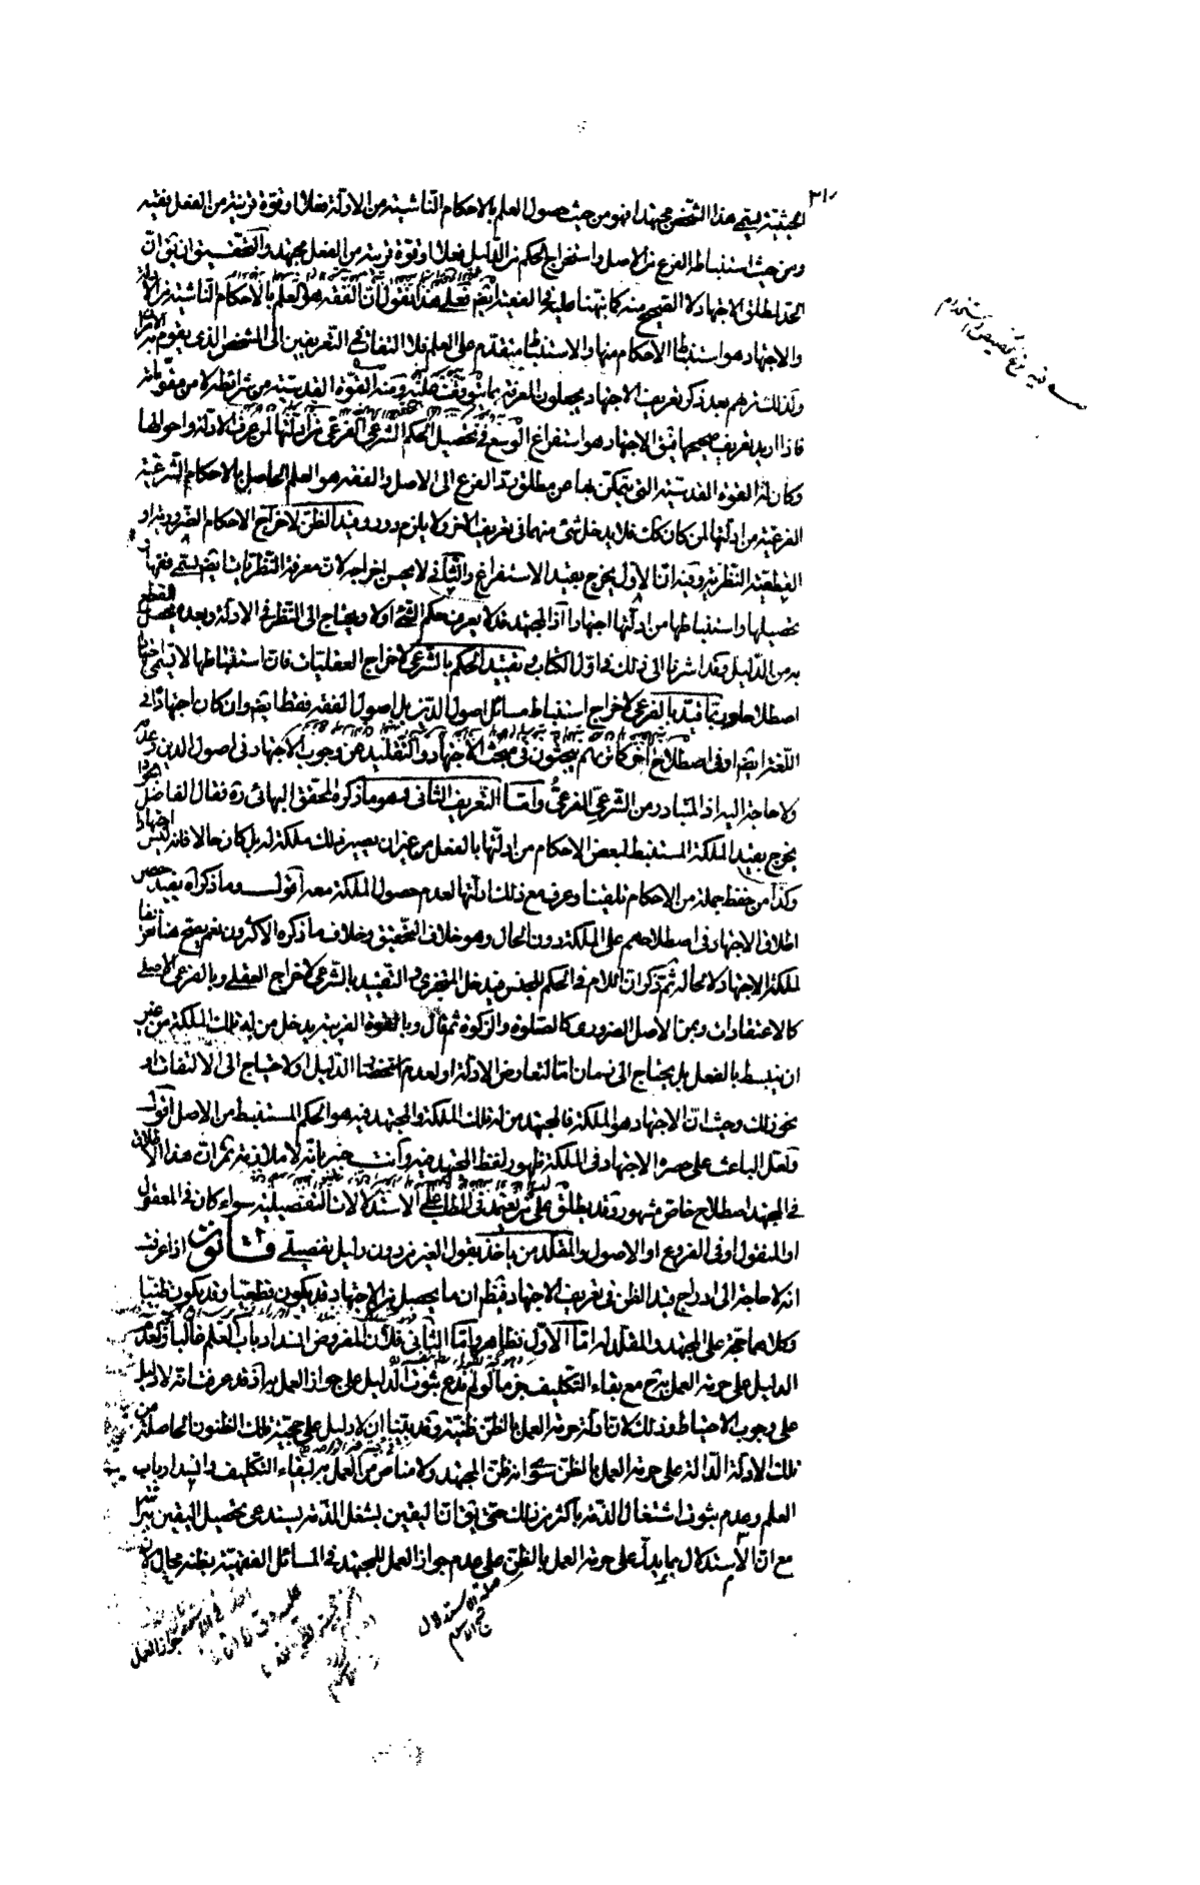 الحيثية يسمى هذا الشخص مجتهدا فهو من حيث حصول العلم بالاحكام الناشئة من الادلة فعلا او قوة قريبة من الفعل فقيه
ومن حيث استنباط الفرع من الاصل واستخراج الحكم من الدليل فعلا او قوة قريبة من الفعل مجتهد والتحقيق ان يق ان
الحد لمطلق الاجتهاد لا الصحيح منه كما نبهنا عليه في الفقيه ايضا فعلى هذا نقول ان الفقه هو العلم بالاحكام الناشئة من الادلة
والاجتهاد هو استنباط الاحكام منها والاستنباط متقدم على العلم فلا التفات في التعريفين الى الشخص الذي يقوم به الامران
ولذلك تريهم بعد ذكر تعريف الاجتهاد يجعلون المعرفة بما يتوقف عليه ومنه القوة القدسية من شرائطه لا من مقوماته
فاذا اريد تعريف صحيحها فيق الاجتهاد هو استفراغ الوسع في تحصيل الحكم الشرعي الفرعي من ادلتها لمن عرف الادلة واحوالها
وكان له القوة القدسية التي يتمكن بها عن مطلق رد الفرع الى الاصل والفقه هو العلم الحاصل بالاحكام الشرعية
الفرعية من ادلتها لمن كان كك فلا يدخل شئ منهما في تعريف الاخر ولا يلزم دور وقيد الظن لاخراج الاحكام الضرورية او
القطعية النظرية وفيه ان الاول يخرج بقيد الاستفراغ والثاني لا يحسن اخراجه لان معرفة النظريات ايضا يسمى فقها و
تحصيلها واستنباطها من ادلتها اجتهادا اذ المجتهد قد لا يعرف حكم الشئ اولا ويحتاج الى النظر في الادلة وبعده يحصل القطع
به من الدليل وقد اشرنا الى ذلك في اول الكتاب وتقييد الحكم بالشرعي لاخراج العقليات فان استنباطها لا يسمى اجتهادا
اصطلاحا وربما قيد بالفرعي لاخراج استنباط مسائل اصول الدين بل اصول الفقه فقط ايضا وان كان اجتهادا في
اللغة ايضا او في اصطلاح اخر كما تريهم يبحثون في مبحث الاجتهاد والتقليد عن وجوب الاجتهاد في اصول الدين وعدمه
ولا حاجة اليه اذ المتبادر من الشرعي الفرعي واما التعريف الثاني فهو ما ذكره المحقق البهائي ره فقال الفاضل الجواد
يخرج بقيد الملكة المستنبط لبعض الاحكام من ادلتها بالفعل من غير ان يصير ذلك ملكة له بل كان حالا فانه ليس اجتهادا
وكذا من حفظ جملة من الاحكام تلقينا وعرف مع ذلك ادلتها لعدم حصول الملكة معه اقول وما ذكراه يفيد حصر
اطلاق الاجتهاد في اصطلاحهم على الملكة دون الحال وهو خلاف التحقيق وخلاف ما ذكره الاكثرون نعم يصح هذا تعريفا
لملكة الاجتهاد لا محالة ثم ذكر ان اللام في الحكم للجنس فيدخل المتجزي والتقييد بالشرعي لاخراج العقلي وبالفرعي الاصلي
كالاعتقادات وبمن الاصل الضروري كالصلوة والزكوة ثم قال وبالقوة القريبة يدخل من له تلك الملكة من غير
ان ينبسط بالفعل بل يحتاج الى زمان اما لتعارض الادلة او لعدم استحضار الدليل او لاحتياج الى الالتفات او
نحو ذلك وحيث ان الاجتهاد هو الملكة فالمجتهد من له تلك الملكة والمجتهد فيه هو الحكم المستنبط من الاصل اقول
ولعل الباعث على حصره الاجتهاد في الملكة ظهور لفظ المجتهد فيه وانت خبير بانه لا ملازمة ثم ان هذا الاطلاق
في المجتهد اصطلاح خاص مشهور وقد يطلق على من يعتمد في المطلب على الاستدلالات التفصيلية سواء كان في المعقول
او المنقول او في الفروع او الاصول والمقلد من ياخذ بقول الغير من دون دليل تفصيلي قانون اذا عرفت
انه لا حاجة الى ادراج قيد الظن في تعريف الاجتهاد فيظهر ان ما يحصل من الاجتهاد قد يكون قطعيا وقد يكون ظنيا
وكلاهما حجة على المجتهد والمقلد له اما الاول فظاهر واما الثاني فلان المفروض انسداد باب العلم غالبا وعدم
الدليل على حرمة العمل به ح مع بقاء التكليف جزما لو لم ندع ثبوت الدليل على جواز العمل به اذ قد عرفت انه لا دليل
على وجوب الاحتياط وذلك لان ادلة حرمة العمل بالظن ظنية وقد بينا ان لا دليل على حجية تلك الظنون الحاصلة من
تلك الادلة الدالة على حرمة العمل بالظن سوى انه ظن المجتهد ولا مناص من العمل به لبقاء التكليف وانسداد باب
العلم وعدم ثبوت اشتغال الذمة باكثر من ذلك حتى يق ان اليقين بشغل الذمة يستدعي تحصيل اليقين ببرائته
مع ان الاستدلال بما يدل على حرمة العمل بالظن على عدم جواز العمل للمجتهد في المسائل الفقهية بظنه محال لان